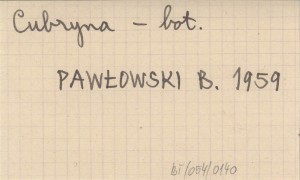 Cubryna - bot.
PAWŁOWSKI B. 1959
bī/054/0140